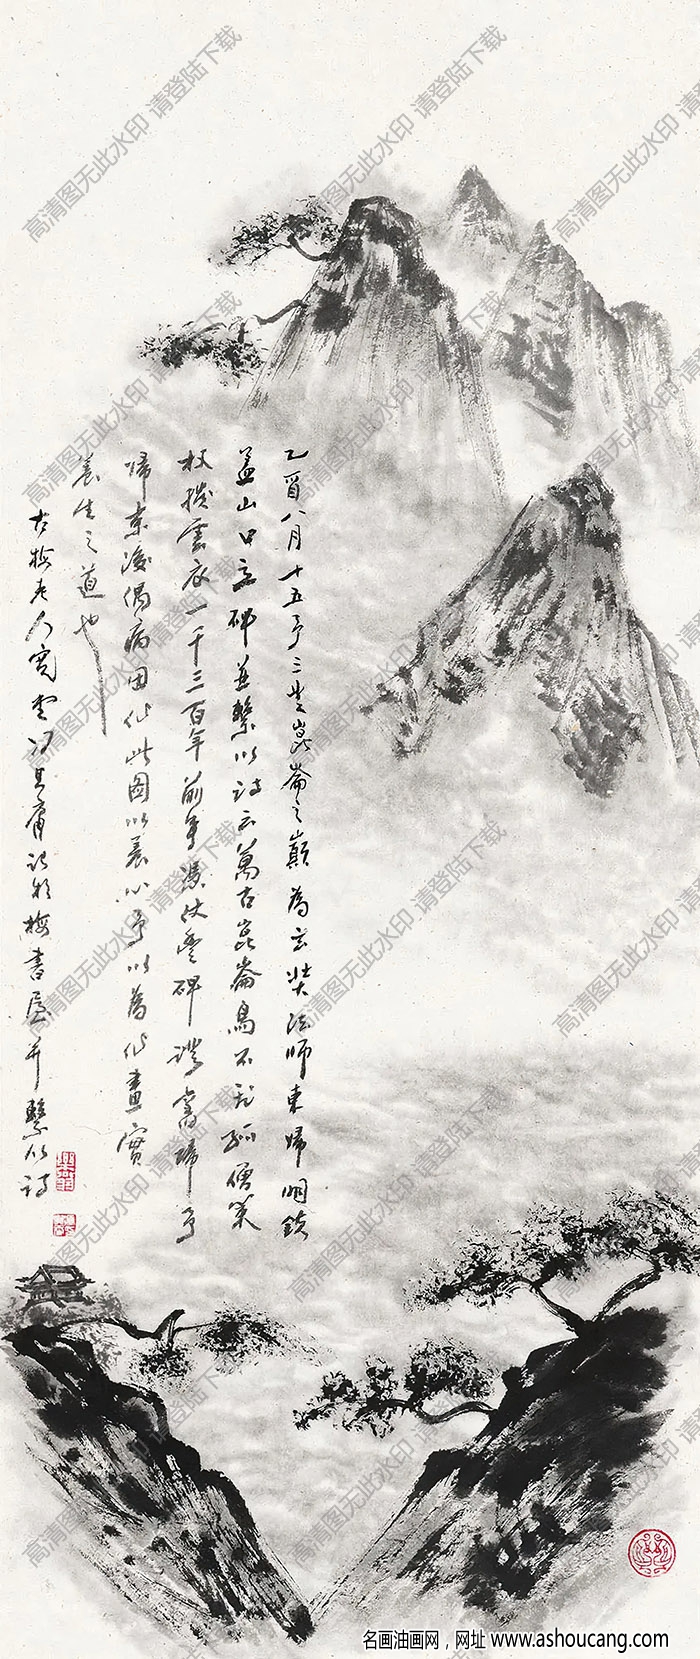 乙酉八月十五予三登崑崙之巔為玄奘法師東歸明鐵
蓋山口立碑並繫以詩云萬古崑崙鳥不飛孤僧策
杖撥雲衣一千三百年前事憑仗豐碑識舊歸予
歸京後偶病因作此圖以養心予以為作畫實
養生之道也
古梅老人寬堂馮其庸識於梅書屋并繫以詩
高清图无此水印 请登陆下载
名画油画网，网址 www.ashoucang.com